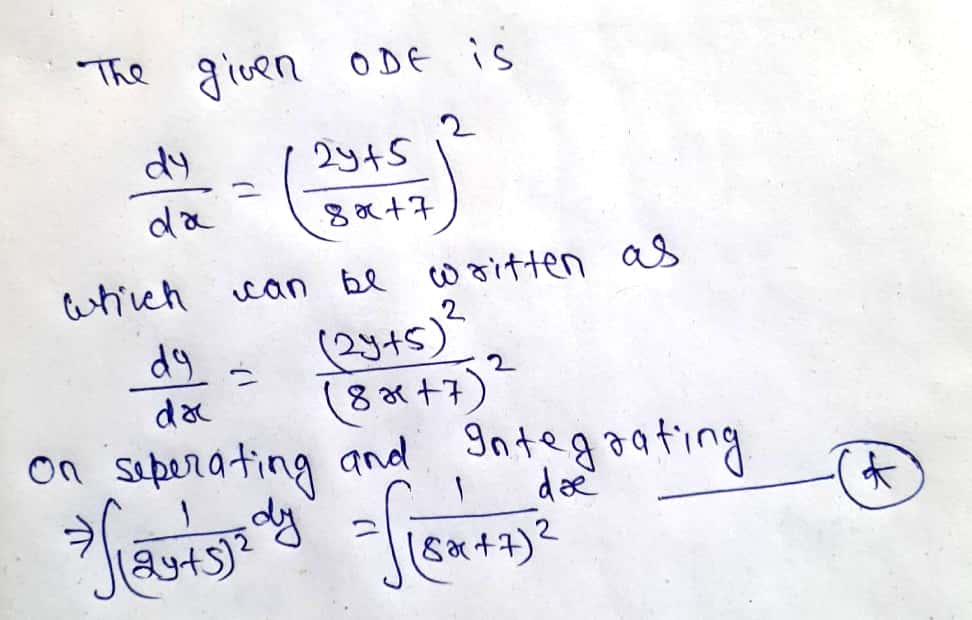 The given ODE is
dy/dx = ((2y+5)/(8x+7))^2
which can be written as
dy/dx = (2y+5)^2/(8x+7)^2
On seperating and Integrating
⇒ ∫ 1/(2y+5)^2 dy = ∫ 1/(8x+7)^2 dx ——— (*)